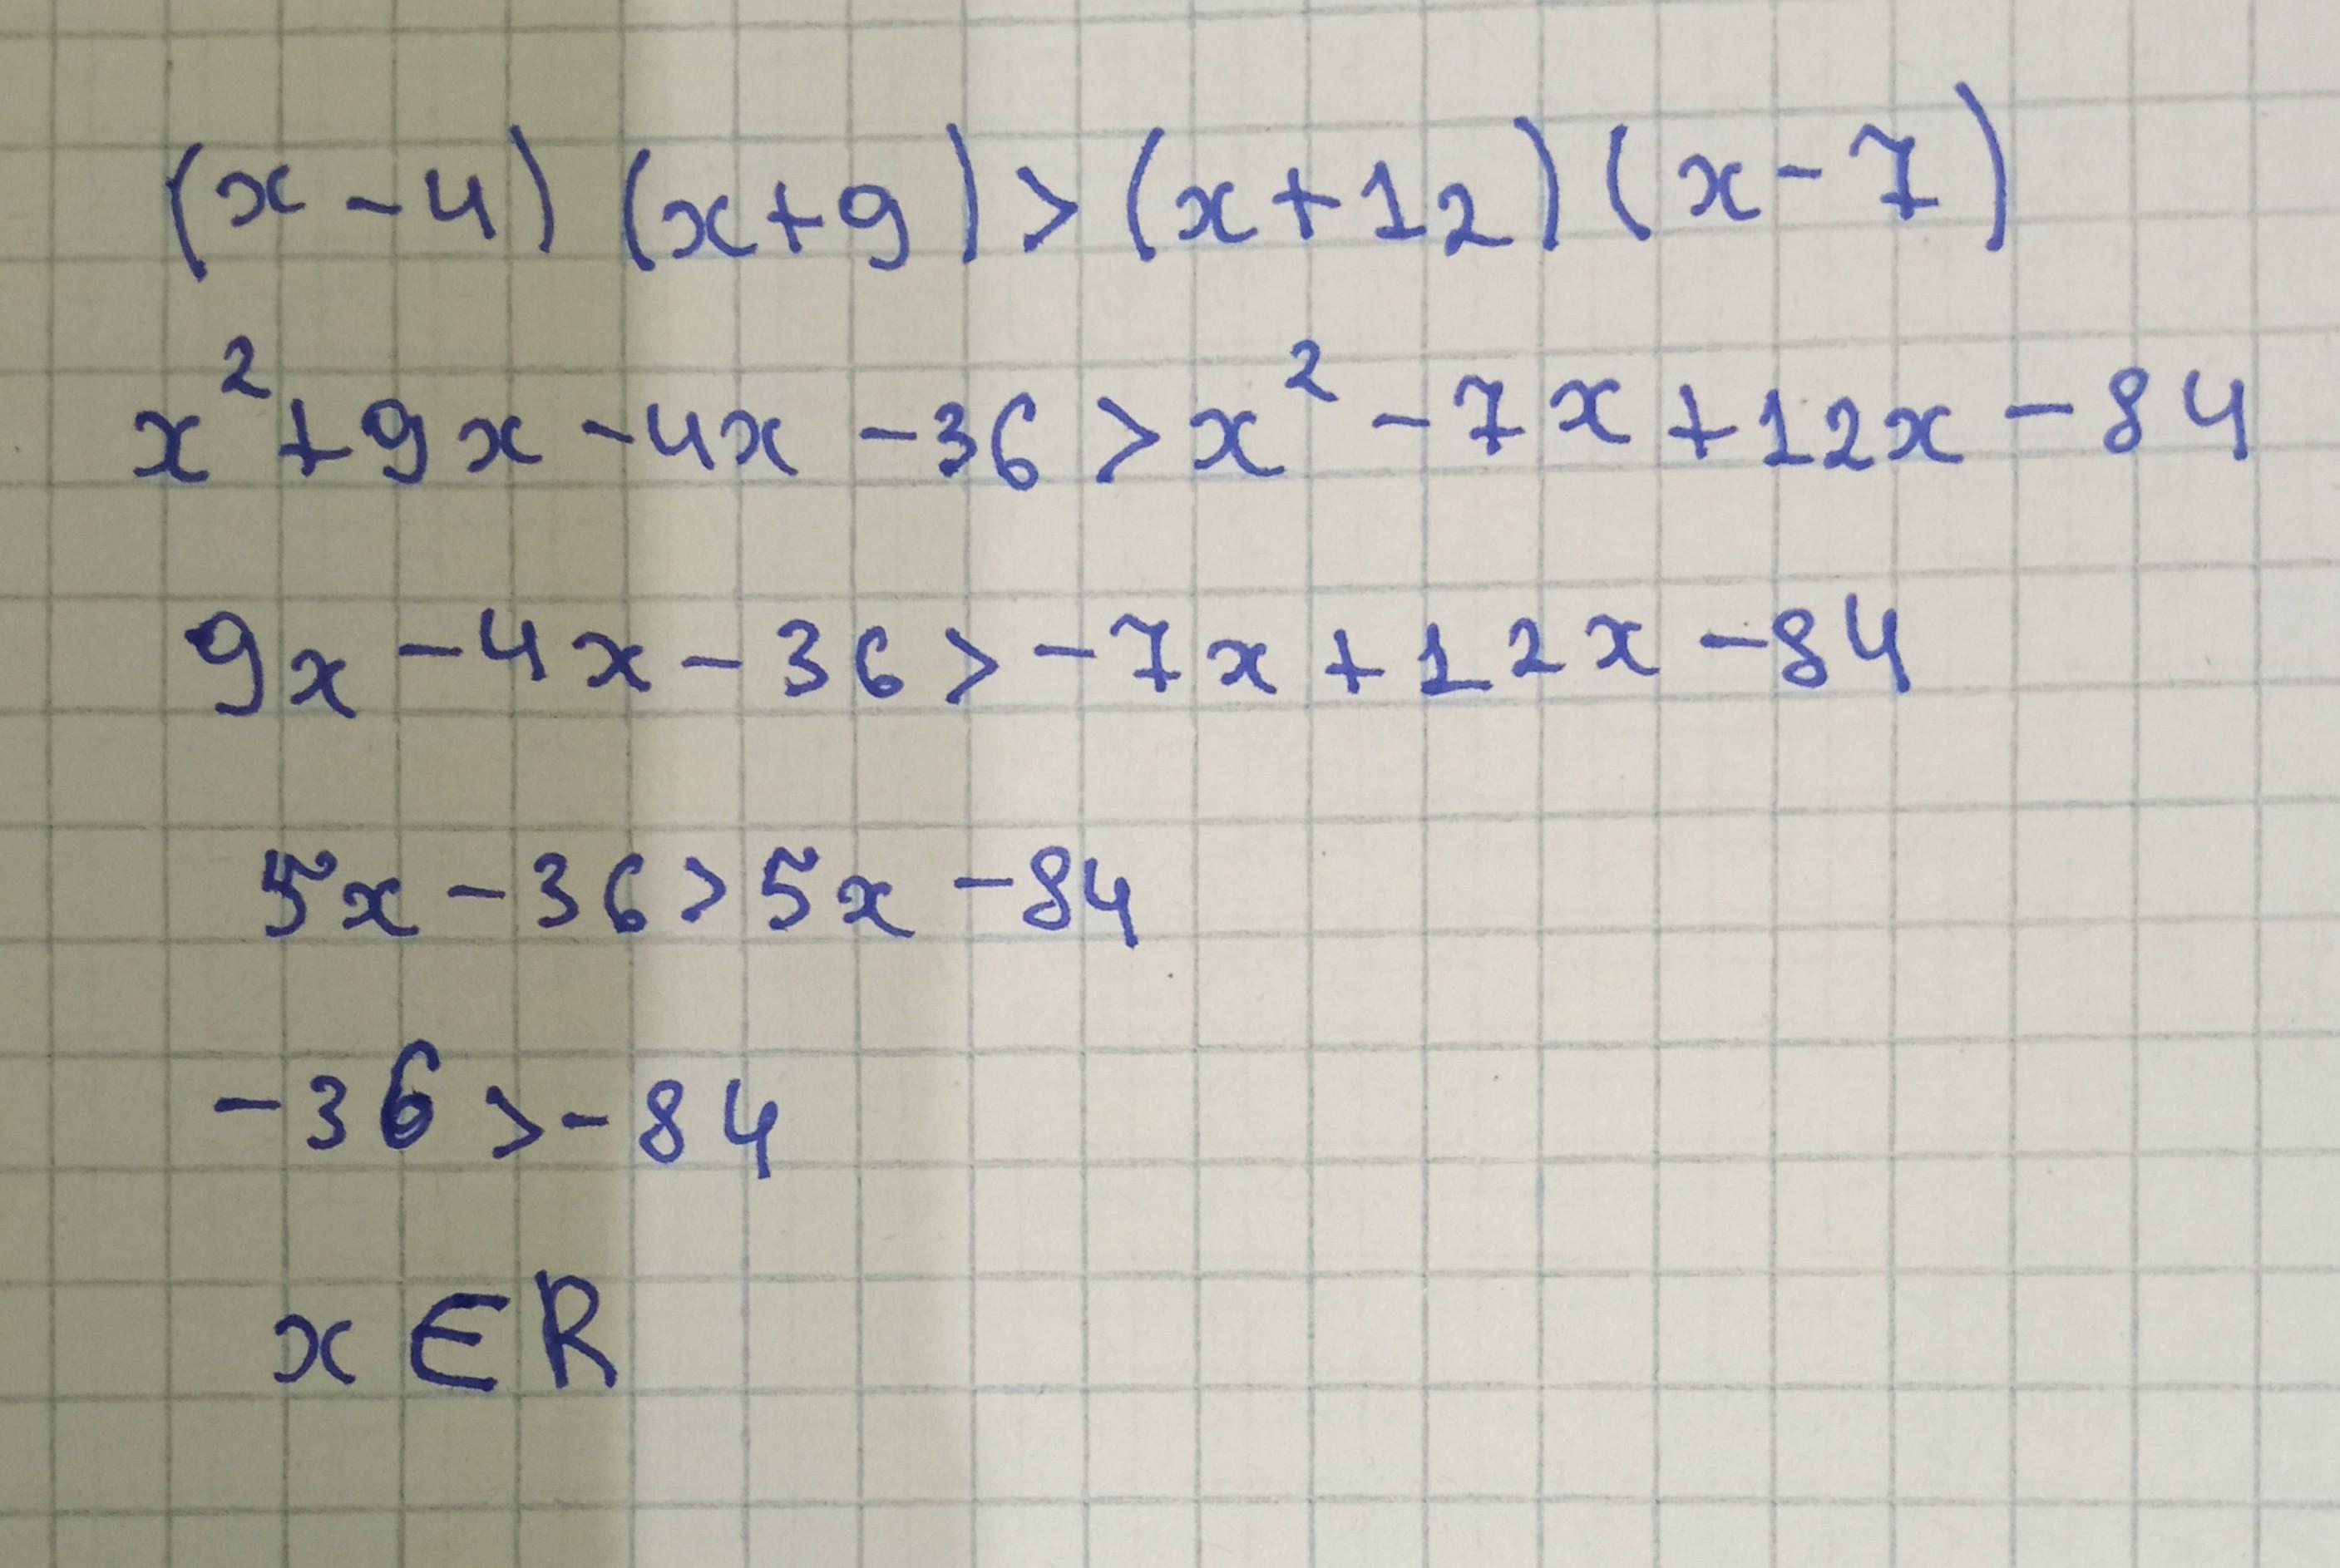 (x-4)(x+9)>(x+12)(x-7)
x²+9x-4x-36>x²-7x+12x-84
9x-4x-36>-7x+12x-84
5x-36>5x-84
-36>-84
x∈R